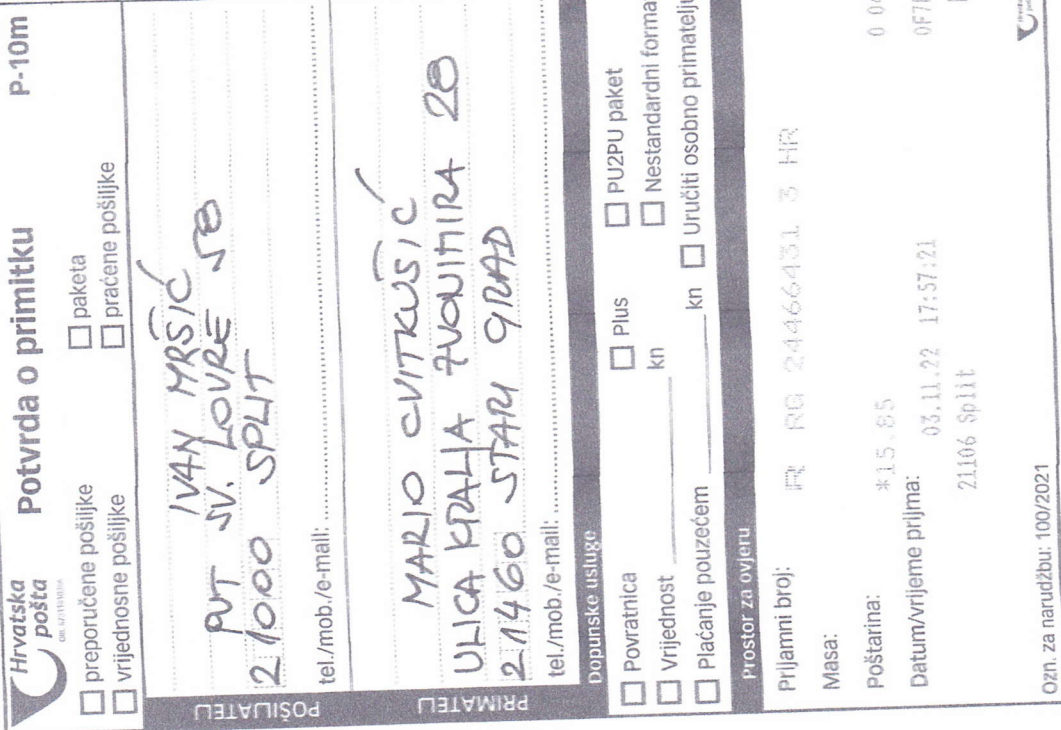 Hrvatska pošta
Potvrda o primitku P-10m
☐ preporučene pošiljke ☐ paketa
☐ vrijednosne pošiljke ☐ praćene pošiljke
POŠILJATELJ
IVAN MRŠIĆ
PUT SV. LOVRE 58
21000 SPLIT
tel./mob./e-mail:
PRIMATELJ
MARIO CVITKUŠIĆ
ULICA KRALJA ZVONIMIRA 28
21460 STARI GRAD
tel./mob./e-mail:
Dopunske usluge
☐ Povratnica ☐ Plus ☐ PU2PU paket
☐ Vrijednost kn ☐ Nestandardni forma
☐ Plaćanje pouzećem kn ☐ Uručiti osobno primatelju
Prostor za ovjeru
Prijamni broj: R RG 24466431 3 HR
Masa:
Poštarina: *15.85
Datum/vrijeme prijma: 03.11.22 17:57:21
21106 Split
Ozn. za narudžbu: 100/2021